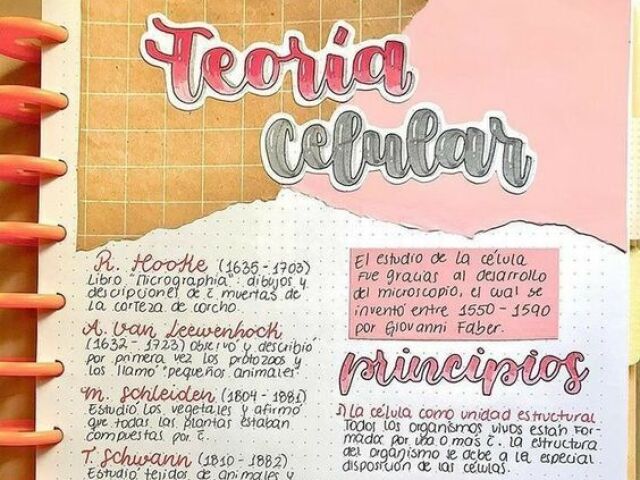 Teoría
celular
R. Hooke (1635 - 1703)
Libro "Micrographia": dibujos y
descripciones de c̄ muertas de
la corteza de corcho.
A. Van Leewenhock
(1632 - 1723) observó y describió
por primera vez los protozoos y
los llamo "pequeños animales"
M. Schleiden (1804 - 1881)
Estudió los vegetales y afirmó
que todas las plantas estaban
compuestas por c̄.
T. Schwann (1810 - 1882)
Estudió tejidos de animales y
El estudio de la célula
fue gracias al desarrollo
del microscopio, el cual se
inventó entre 1550 - 1590
por Giovanni Faber.
principios
1) La célula como unidad estructural
Todos los organismos vivos están for-
mador por una o mas c̄. La estructura
del organismo se debe a la especial
disposición de las células.